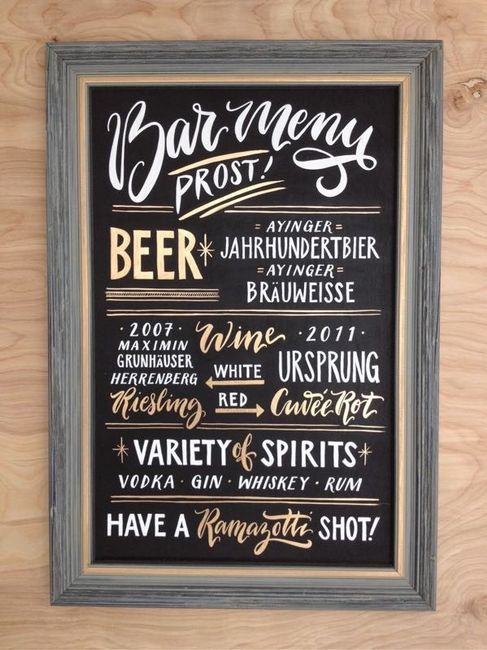 Bar Menu
PROST!
BEER
=AYINGER=
JAHRHUNDERTBIER
=AYINGER=
BRÄUWEISSE
Wine
·2007·
MAXIMIN
GRUNHÄUSER
HERRENBERG
Riesling
WHITE
RED
·2011·
URSPRUNG
Cuvée Rot
VARIETY of SPIRITS
VODKA · GIN · WHISKEY · RUM
HAVE A Ramazotti SHOT!